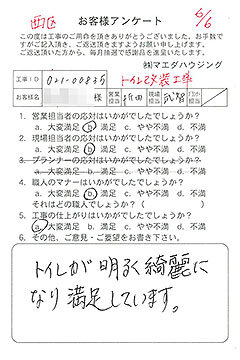 西区 お客様アンケート 6/6
この度は工事のご用命を頂きありがとうございました。お手数で
すがご記入頂き、ご返送頂きますようお願い申し上げます。
ご返送頂いた方から、毎月抽選で感謝品を進呈いたします。
㈱マエダハウジング
工事ID 021-00835 トイレ改装工事
お客様名 様 営業担当 折田 現場担当 武智 プランナー担当
1. 営業担当者の応対はいかがでしたでしょうか?
a. 大変満足 b. 満足 c. やや不満 d. 不満
2. 現場担当者の応対はいかがでしたでしょうか?
a. 大変満足 b. 満足 c. やや不満 d. 不満
3. プランナーの応対はいかがでしたでしょうか?
a. 大変満足 b. 満足 c. やや不満 d. 不満
4. 職人のマナーはいかがでしたでしょうか?
a. 大変満足 b. 満足 c. やや不満 d. 不満
それはどの職人でしょうか?( )
5. 工事の仕上がりはいかがでしたでしょうか?
a. 大変満足 b. 満足 c. やや不満 d. 不満
6. その他、ご意見・ご要望をお書き下さい。
トイレが明るく綺麗に
なり満足しています。